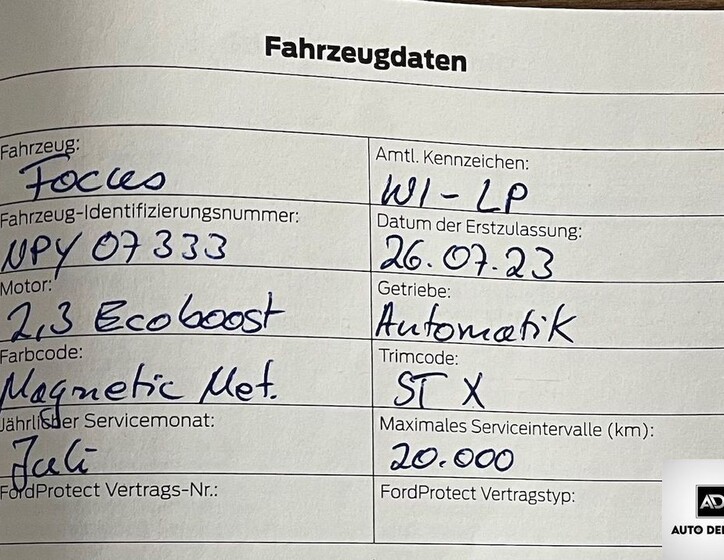 Fahrzeugdaten
Fahrzeug:
Focus
Amtl. Kennzeichen:
WI-LP
Fahrzeug-Identifizierungsnummer:
NPY 07333
Datum der Erstzulassung:
26.07.23
Motor:
2,3 Ecoboost
Getriebe:
Automatik
Farbcode:
Magnetic Met.
Trimcode:
ST X
Jährlicher Servicemonat:
Juli
Maximales Serviceintervalle (km):
20.000
FordProtect Vertrags-Nr.:
FordProtect Vertragstyp:
AD
AUTO DE